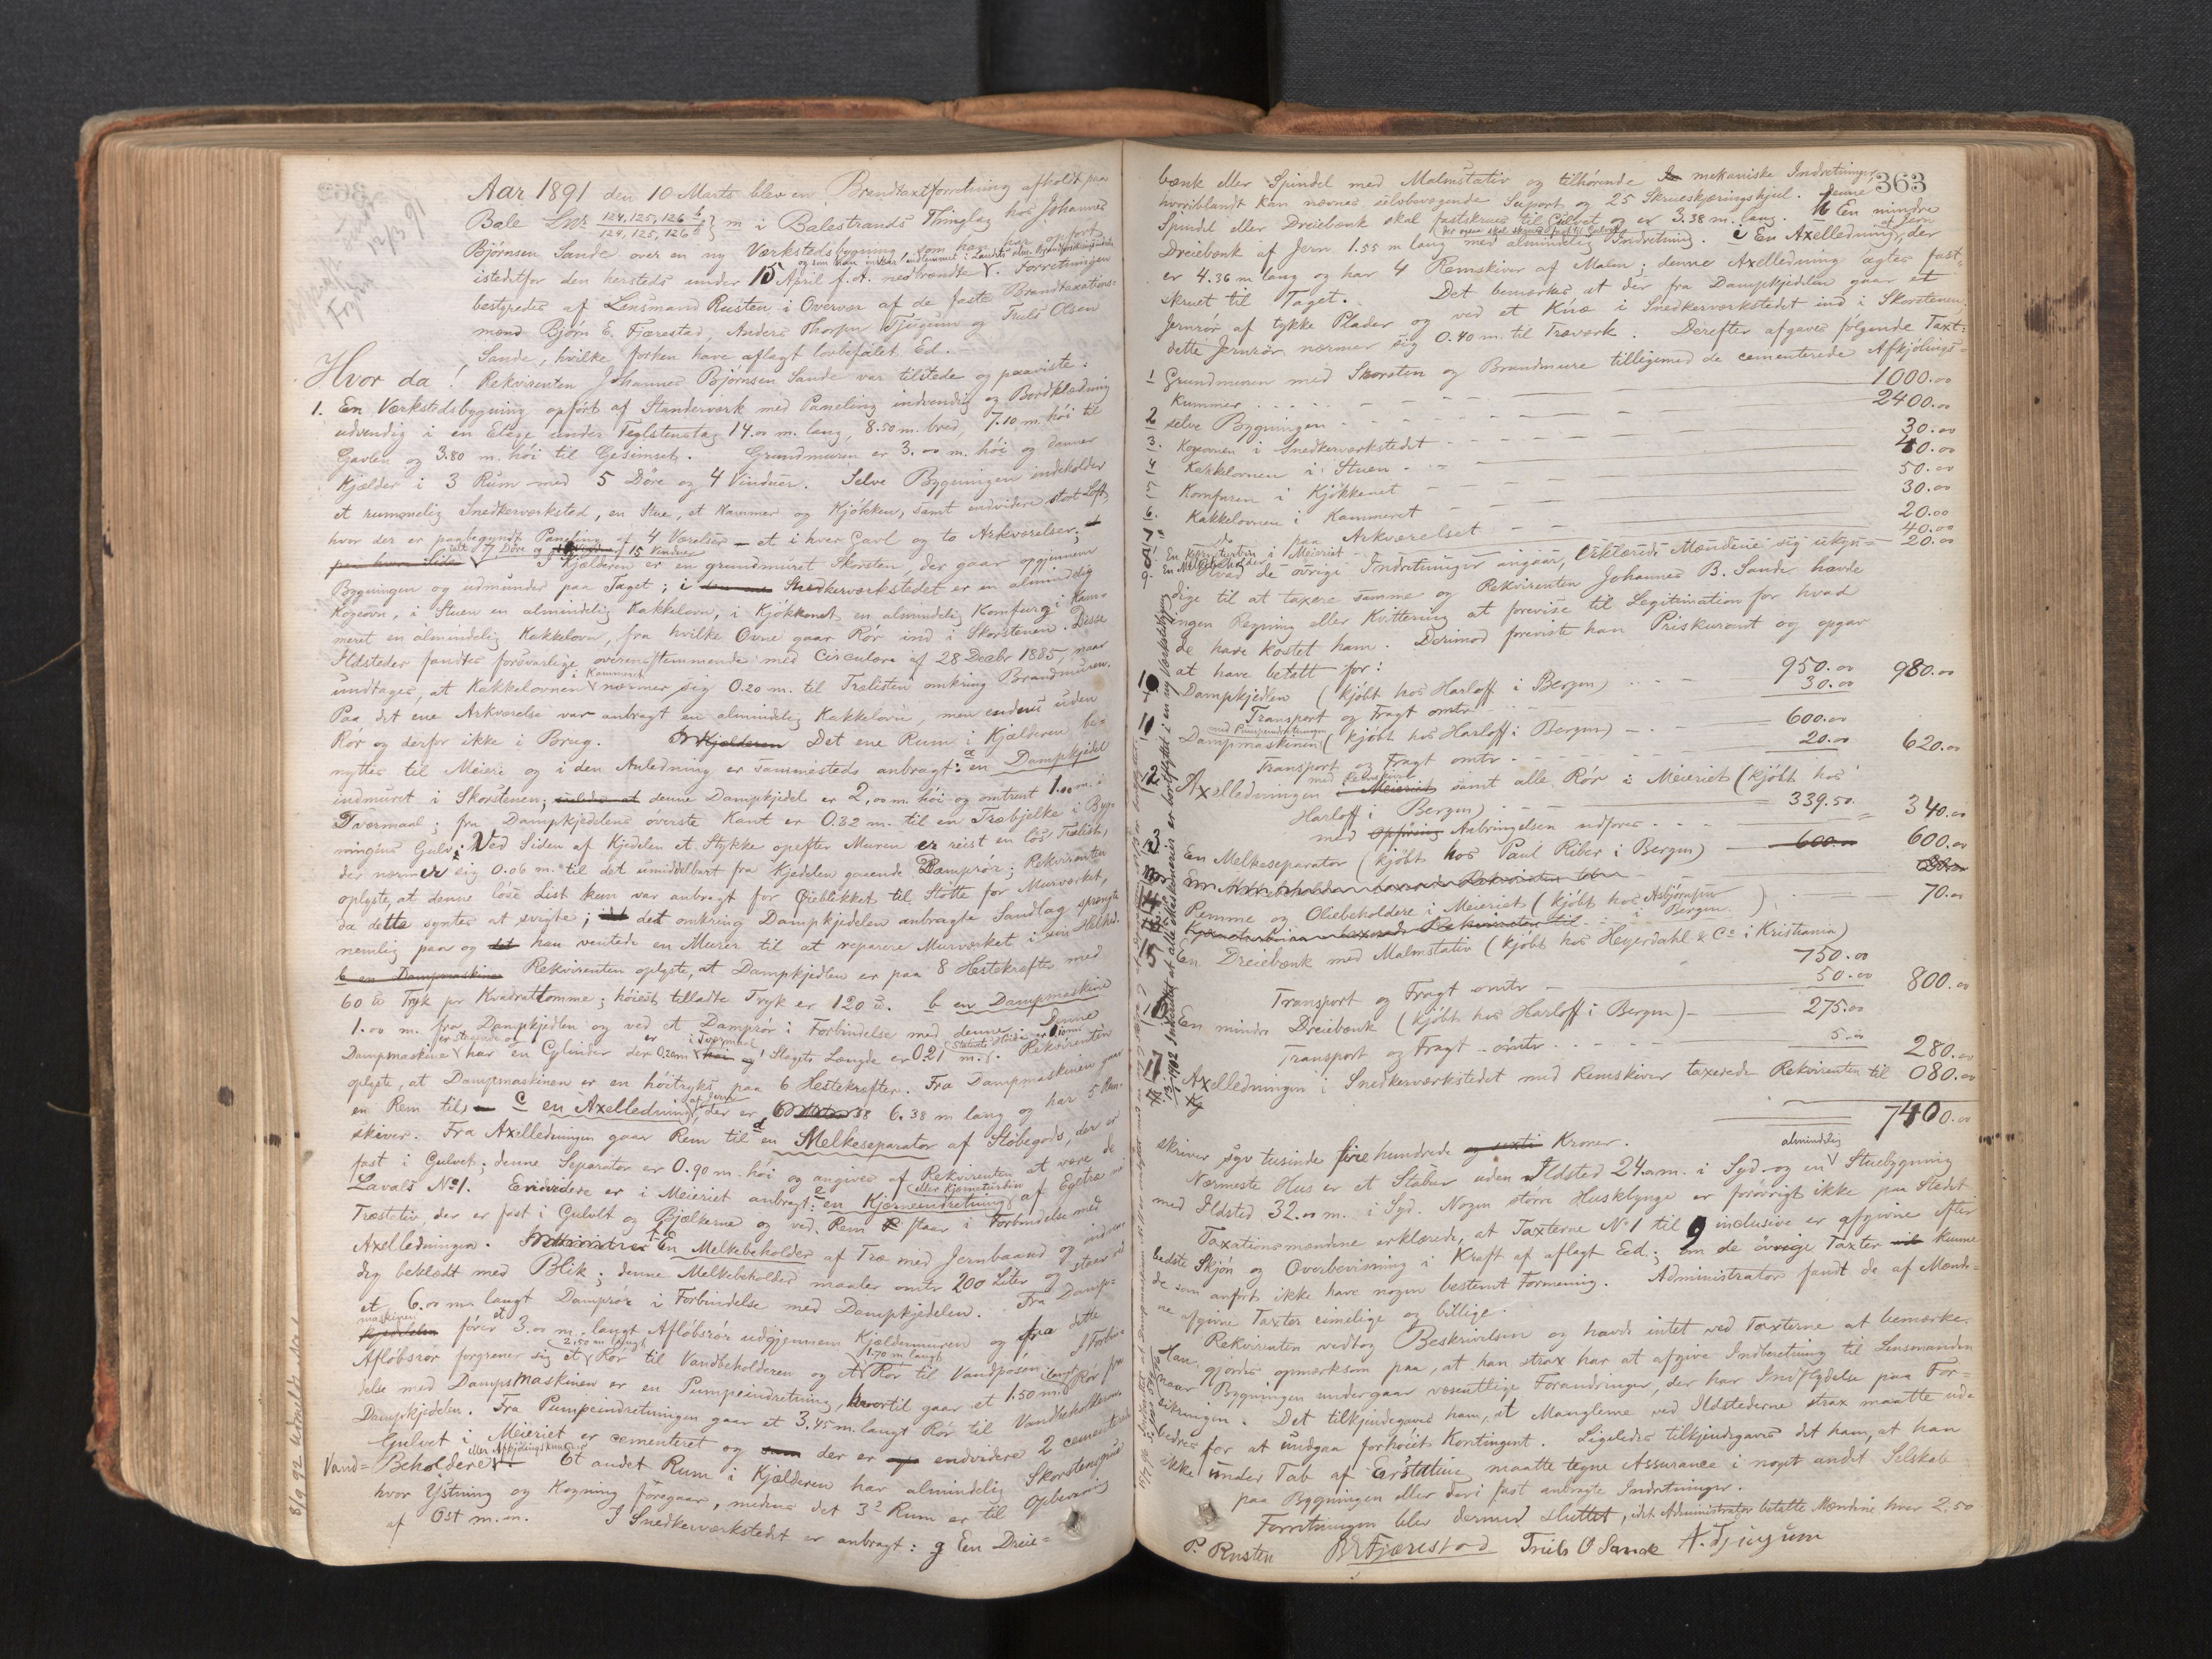 Aar 1891 den 10 Marts blev en Brandtaxtforretning afholdt paa
Bale LNr 124, 125, 126 b m i Balestrands Thinglag hos Johannes
124, 125, 126 b
Bjørnsen Sande over en ny Værkstedsbygning som han har opført
istedetfor den hersteds under 15 April f. A. nedbrændte. Forretningen
bestyredes af Lensmand Rusten i Overvær af de faste Brandtaxations-
mænd Bjørn E. Fjærestad, Anders Thorsen Tjugum og Truls Olsen
Sande, hvilke forhen have aflagt lovbefalet Ed.
Hvor da! Rekvirenten Johannes Bjørnsen Sande var tilstede og paaviste:
1. En Værkstedsbygning opført af Standerværk med Paneling indvendig og Bordklædning
udvendig i en Etage under Teglstenstag 14.00 m. lang, 8.50 m. bred, 7.10 m. høi til
Gavlen og 3.80 m. høi til Gesimset. Grundmuren er 3.00 m. høi og danner
Kjælder i 3 Rum med 5 Døre og 4 Vinduer. Selve Bygningen indeholder
et rummelig Snedkerværksted, en Stue, et Kammer og Kjøkken, samt endvidere stort Loft,
hvor der er paabegyndt Paneling af 4 Værelser – et i hver Gavl og to Arkværelser;
ialt 7 Døre og 15 Vinduer
I Kjælderen er en grundmuret Skorsten, der gaar opgjennem
Bygningen og udmunder paa Taget; i Snedkerværkstedet er en almindelig
Kogeovn, i Stuen en almindelig Kakkelovn, i Kjøkkenet en almindelig Komfur og i Kam-
meret en almindelig Kakkelovn, fra hvilke Ovne gaar Rør ind i Skorstenen. Disse
Ildsteder fandtes forsvarlige overensstemmende med Circulære af 28 Decbr 1885, naar
undtages, at Kakkelovnen i Kammeret nærmer sig 0.20 m. til Trælisten omkring Brandmuren.
Paa det ene Arkværelse var anbragt en almindelig Kakkelovn, men endnu uden
Rør og derfor ikke i Brug. Det ene Rum i Kjælderen be-
nyttes til Meieri og i den Anledning er sammesteds anbragt: a en Dampkjedel
indmuret i Skorstenen; denne Dampkjedel er 2.00 m. høi og omtrent 1.00 m. i
Tværmaal; fra Dampkjedelens øverste Kant er 0.32 m. til en Træbjelke i Byg-
ningens Gulv. Ved Siden af Kjedelen et Stykke opefter Muren er reist en løs Trælist,
der nærmer sig 0.06 m. til det umiddelbart fra Kjedelen gaaende Damprør; Rekvirenten
oplyste, at denne løse List kun var anbragt for Øieblikket til Støtte for Murværket,
da dette syntes at svigte; det omkring Dampkjedelen anbragte Sandlag sprengte
nemlig paa og han ventede en Murer til at reparere Murværket i sin Helhed.
b en Dampmaskine Rekvirenten oplyste, at Dampkjedlen er paa 8 Hestekræfter med
60 ℔ Tryk pr Kvadrattomme; høieste tilladte Tryk er 120 ℔. b en Dampmaskine
1.00 m. fra Dampkjedlen og ved et Damprør i Forbindelse med denne. Denne
Dampmaskine har en Cylinder der er 0.20 m i Tværmaal og Slagets Længde er 0.21 m. Rekvirenten
oplyste, at Dampmaskinen er en høitryks paa 6 Hestekræfter. Fra Dampmaskinen gaar
en Rem til c en Axelledning af Jern, der er 6.38 m lang og har 5 Rem-
skiver. Fra Axelledningen gaar Rem til d en Melkeseparator af Støbegods, der er
fast i Gulvet; denne Separator er 0.90 m. høi og angives af Rekvirenten at være de
Lavals No 1. Endvidere er i Meieriet anbragt: e en Kjerneindretning (eller Kjerneturbin) af Egetræ med
Træstativ, der er fast i Gulvet og Bjælkerne og ved Rem staar i Forbindelse med
Axelledningen. f En Melkebeholder af Træ med Jernbaand og indven-
dig beklædt med Blik; denne Melkebeholder maaler omtr 200 Liter og staar ved
et 6.00 m. langt Damprør i Forbindelse med Dampkjedelen. Fra Damp-
maskinen fører et 3.00 m. langt Afløbsrør udgjennem Kjældermuren og fra dette
Afløbsrør forgrener sig et 2.50 m langt Rør til Vandbeholderen og et 1.70 m langt Rør til Vandposen. I Forbin-
delse med Dampmaskinen er en Pumpeindretning, hvortil gaar et 1.50 m. langt Rør fra
Dampkjedelen. Fra Pumpeindretningen gaar et 3.45 m. langt Rør til Vandbeholderen.
Gulvet i Meieriet er cementeret og der er endvidere 2 cementerede
Vand- Beholdere eller Afkjølingskummer. Et andet Rum i Kjælderen har almindelig Skorstenspibe
hvor Ystning og Kogning foregaar, medens det 3de Rum er til Opbevaring
af Ost m. m. I Snedkerværkstedet er anbragt: g En Dreie-
363
bænk eller Spindel med Malmstativ og tilhørende mekaniske Indretninger,
hvoriblandt kan nævnes selvbevægende Suport og 25 Skrueskjæringshjul. Denne
Spindel eller Dreiebænk skal fastskrues til Gulvet og er 3.38 m. lang. h En mindre
Dreiebænk af Jern 1.55 m lang med almindelig Indretning. i En Axelledning af Jern, der
er 4.36 m lang og har 4 Remskiver af Malm; denne Axelledning agtes fast-
skruet til Taget. Det bemærkes at der fra Dampkjedelen gaar et
Jernrør af tykke Plader og ved et Knæ i Snedkerværkstedet ind i Skorstenen,
dette Jernrør nærmer sig 0.40 m. til Træværk. Derefter afgaves følgende Taxt:
1 Grundmuren med Skorsten og Brandmure tilligemed de cementerede Afkjølings-
Kummer 1000.00
2 selve Bygningen 2400.00
3. Kogeovnen i Snedkerværkstedet 30.00
4 Kakkelovnen i Stuen 40.00
5 Komfuren i Kjøkkenet 50.00
6. Kakkelovnen i Kammeret 30.00
7 do paa Arkværelset 20.00
8. En Kjerneturbin i Meieriet 40.00
9. En Melkebeholder 20.00
Hvad de øvrige Indretninger angaar, erklærede Mændene sig ukyn-
dige til at taxere samme og Rekvirenten Johannes B. Sande havde
ingen Regning eller Kvittering at forevise til Legitimation for hvad
de have kostet ham. Derimod foreviste han Priskurant og opgav
at have betalt for:
10 Dampkjedlen (kjøbt hos Harloff i Bergen) 950.00
Transport og Fragt omtr 30.00 980.00
11 Dampmaskinen med Pumpeindretningen (kjøbt hos Harloff i Bergen) 600.00
Transport og Fragt omtr 20.00 620.00
12 Axelledningen med Remskiver samt alle Rør i Meieriet (kjøbt hos
Harloff i Bergen) 339.50 = 340.00
med Anbringelsen udføres
13 En Melkeseparator (kjøbt hos Paul Riber i Bergen) 600.00 600.00
14 Remme og Oliebeholdere i Meieriet (kjøbt hos Asbjørnsen i Bergen) 70.00
15 En Dreiebænk med Malmstativ (kjøbt hos Heyerdahl & Co i Kristiania)
750.00
Transport og Fragt omtr 50.00 800.00
16 En mindre Dreiebænk (kjøbt hos Harloff i Bergen) 275.00
Transport og Fragt omtr 5.00 280.00
17 Axelledningen i Snedkerværkstedet med Remskiver taxerede Rekvirenten til 080.00
7400.00
skriver syv tusinde fire hundrede Kroner.
Nærmeste Hus er et Stabur uden Ildsted 24.00 m. i Syd og en almindelig Stuebygning
med Ildsted 32.00 m. i Syd. Nogen større Husklynge er forøvrigt ikke paa Stedet.
Taxationsmændene erklærede, at Taxterne No 1 til 9 inclusive er afgivne efter
bedste Skjøn og Overbevisning i Kraft af aflagt Ed; om de øvrige Taxter kunne
de som anført ikke have nogen bestemt Formening. Administrator fandt de af Mænde-
ne afgivne Taxter rimelige og billige.
Rekvirenten vedtog Beskrivelsen og havde intet ved Taxterne at bemærke.
Han gjordes opmærksom paa, at han strax har at afgive Indberetning til Lensmanden
naar Bygningen undergaar væsentlige Forandringer, der har Indflydelse paa For-
sikringen. Det tilkjendegaves ham, at Manglerne ved Ildstederne strax maatte ud-
bedres for at undgaa forhøiet Kontingent. Ligeledes tilkjendegaves det ham, at han
ikke under Tab af Erstatning maatte tegne Assurance i noget andet Selskab
paa Bygningen eller deri fast anbragte Indretninger.
Forretningen blev dermed sluttet, idet Administrator betalte Mændene hver 2.50
P. Rusten BEFjærestad Truls O Sande A. Tjugum